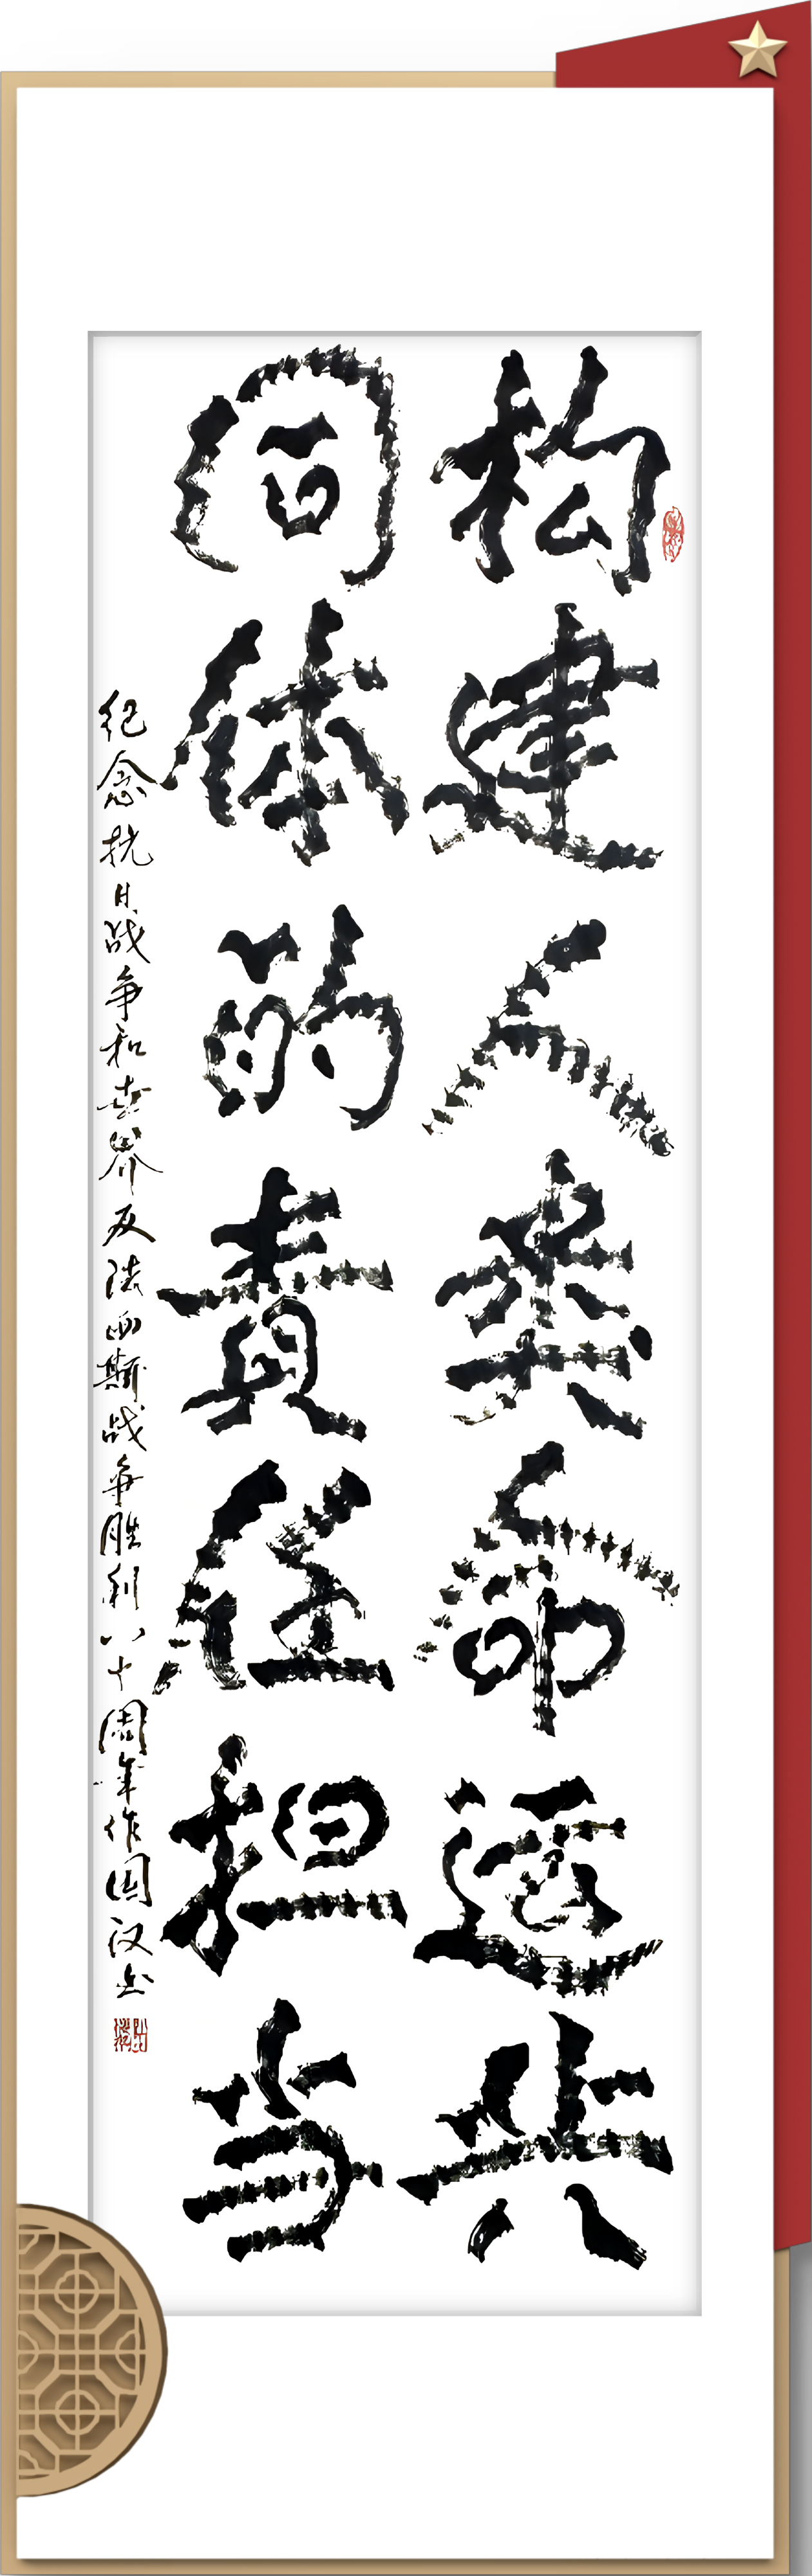 构建人类命运共
同体的责任担当
纪念抗日战争和世界反法西斯战争胜利八十周年作国汉书